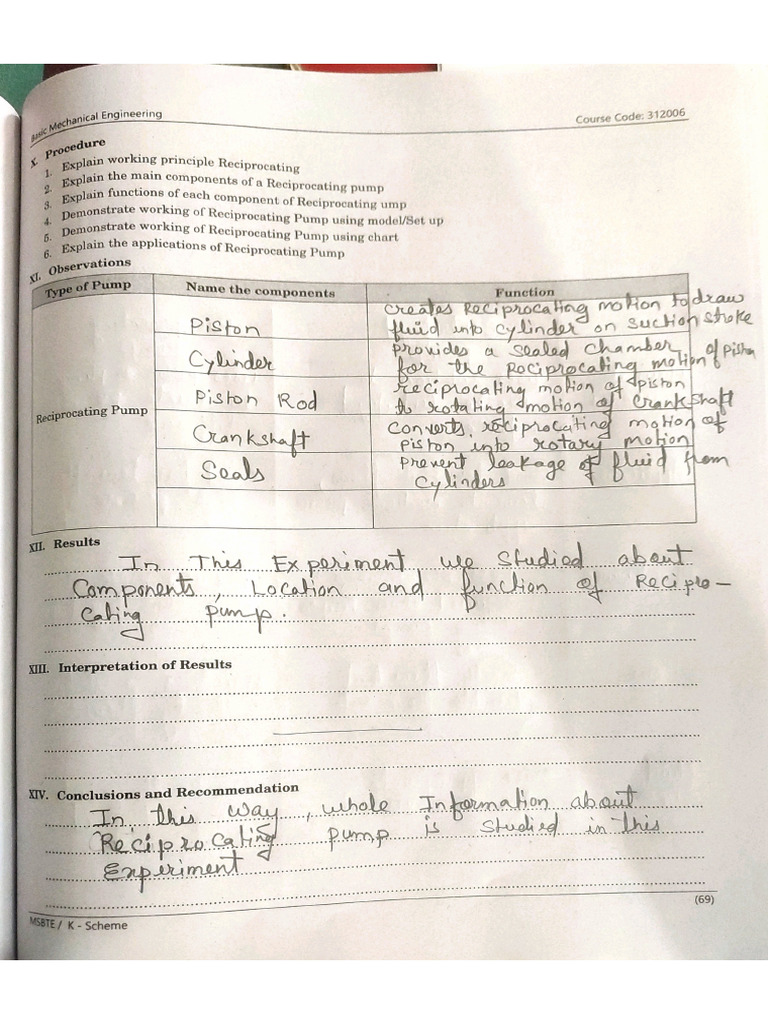 Basic Mechanical Engineering
Course Code: 312006
X. Procedure
1. Explain working principle Reciprocating
2. Explain the main components of a Reciprocating pump
3. Explain functions of each component of Reciprocating ump
4. Demonstrate working of Reciprocating Pump using model/Set up
5. Demonstrate working of Reciprocating Pump using chart
6. Explain the applications of Reciprocating Pump
XI. Observations
Type of Pump
Name the components
Function
Reciprocating Pump
Piston
creates Reciprocating motion to draw
fluid into cylinder on suction stroke
Cylinder
provides a sealed chamber
for the rociprocating motion of piston
Piston Rod
reciprocating motion of piston
to rotating motion of crankshaft
Crankshaft
converts reciprocating motion of
piston into rotary motion
Seals
prevent leakage of fluid from
cylinders
XII. Results
In This Experiment, we studied about
Components, Location and function of Recipro-
cating pump.
XIII. Interpretation of Results
XIV. Conclusions and Recommendation
In this way, whole Information about
Reciprocating pump is studied in this
Experiment
(69)
MSBTE / K - Scheme